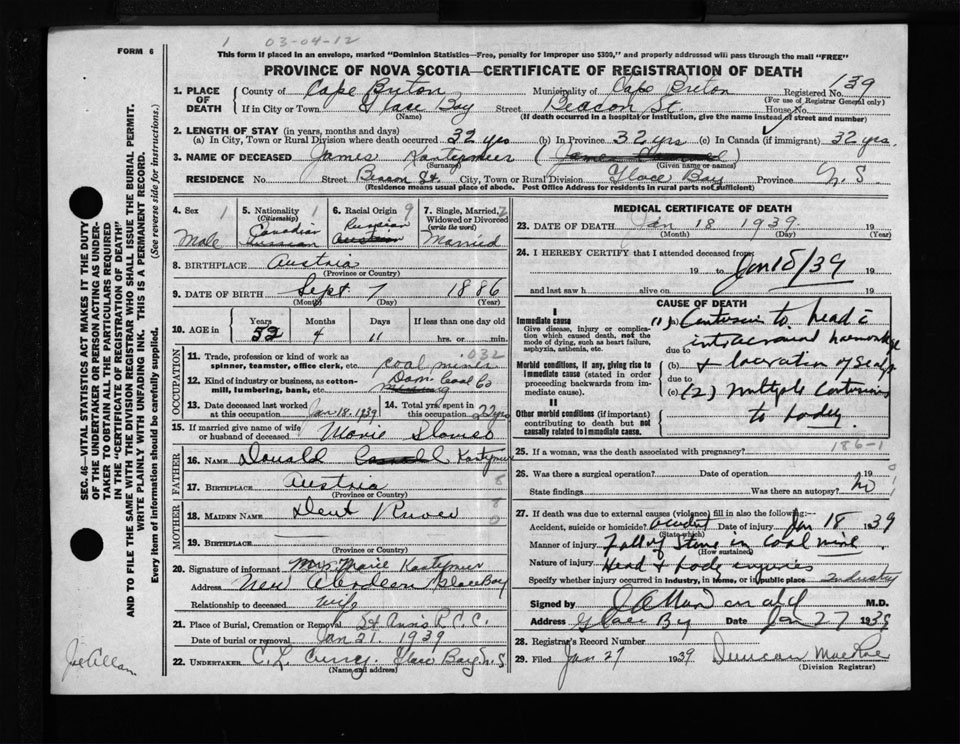 1 03-04-12
FORM 6
This form if placed in an envelope, marked "Dominion Statistics—Free, penalty for improper use $300," and properly addressed will pass through the mail "FREE"
PROVINCE OF NOVA SCOTIA—CERTIFICATE OF REGISTRATION OF DEATH
SEC. 46—VITAL STATISTICS ACT MAKES IT THE DUTY
OF THE UNDERTAKER OR PERSON ACTING AS UNDER-
TAKER TO OBTAIN ALL THE PARTICULARS REQUIRED
IN THE "CERTIFICATE OF REGISTRATION OF DEATH"
AND TO FILE THE SAME WITH THE DIVISION REGISTRAR WHO SHALL ISSUE THE BURIAL PERMIT.
WRITE PLAINLY WITH UNFADING INK. THIS IS A PERMANENT RECORD.
Every item of information should be carefully supplied. (See reverse side for instructions.)
1. PLACE OF DEATH County of Cape Breton Municipality of Cape Breton Registered No. 139
(For use of Registrar General only)
If in City or Town Glace Bay Street Beacon St. House No.
(Name) (If death occurred in a hospital or institution, give the name instead of street and number)
2. LENGTH OF STAY (in years, months and days)
(a) In City, Town or Rural Division where death occurred 32 yrs (b) In Province 32 yrs (c) In Canada (if immigrant) 32 yrs.
3. NAME OF DECEASED James Kantymeer (James
(Surname) (Given name or names)
RESIDENCE No. Street Beacon St. City, Town or Rural Division Glace Bay Province N.S.
(Residence means usual place of abode. Post Office Address for residents in rural parts not sufficient)
4. Sex 1 Male
5. Nationality 1 (Citizenship) Canadian Russian
6. Racial Origin 9 Russian Austrian
7. Single, Married, Widowed or Divorced (write the word) 2 Married
8. BIRTHPLACE Austria
(Province or Country)
9. DATE OF BIRTH Sept 7 1886
(Month) (Day) (Year)
10. AGE in Years Months Days If less than one day
52 4 11 hrs. or min.
OCCUPATION
11. Trade, profession or kind of work as spinner, teamster, office clerk, etc. coal miner 032
12. Kind of industry or business, as cotton-mill, lumbering, bank, etc. Dom. Coal Co
13. Date deceased last worked at this occupation Jan 18. 1939
14. Total yrs. spent in this occupation 22 yrs
15. If married give name of wife or husband of deceased Marie
FATHER
16. NAME Donald Kantymeer
17. BIRTHPLACE Austria 8
(Province or Country)
MOTHER
18. MAIDEN NAME Dent 8
19. BIRTHPLACE 0
(Province or Country)
20. Signature of informant Mrs Marie Kantymer
Address New Aberdeen Glace Bay
Relationship to deceased wife
21. Place of Burial, Cremation or Removal St Ann's R.C.C.
Date of burial or removal Jan 21. 1939
22. UNDERTAKER C.L. Curry. Glace Bay N.S
(Name and address)
MEDICAL CERTIFICATE OF DEATH
23. DATE OF DEATH Jan 18 1939
(Month) (Day) (Year)
24. I HEREBY CERTIFY that I attended deceased from
19 to Jan 18/39 19
and last saw h alive on 19
CAUSE OF DEATH
I
Immediate cause
Give disease, injury or complication which caused death, not the mode of dying, such as heart failure, asphyxia, asthenia, etc.
(1) (a) Contusion to head c
due to intracranial haemorrhage
Morbid conditions, if any, giving rise to immediate cause (stated in order proceeding backwards from immediate cause).
(b) & laceration of scalp
due to
(c) (2) Multiple Contusions
to body
II
Other morbid conditions (if important) contributing to death but not causally related to immediate cause.
25. If a woman, was the death associated with pregnancy? 186-1
26. Was there a surgical operation? Date of operation 19
State findings Was there an autopsy? no
27. If death was due to external causes (violence) fill in also the following:—
Accident, suicide or homicide? accident Date of injury Jan 18 1939
(State which)
Manner of injury Fall of Stone in coal mine
(How sustained)
Nature of injury Head & body injuries
Specify whether injury occurred in industry, in home, or in public place Industry
Signed by M.D.
Address Glace Bay Date Jan 27 1939
28. Registrar's Record Number
29. Filed Jan 27 1939 Duncan MacRae
(Division Registrar)